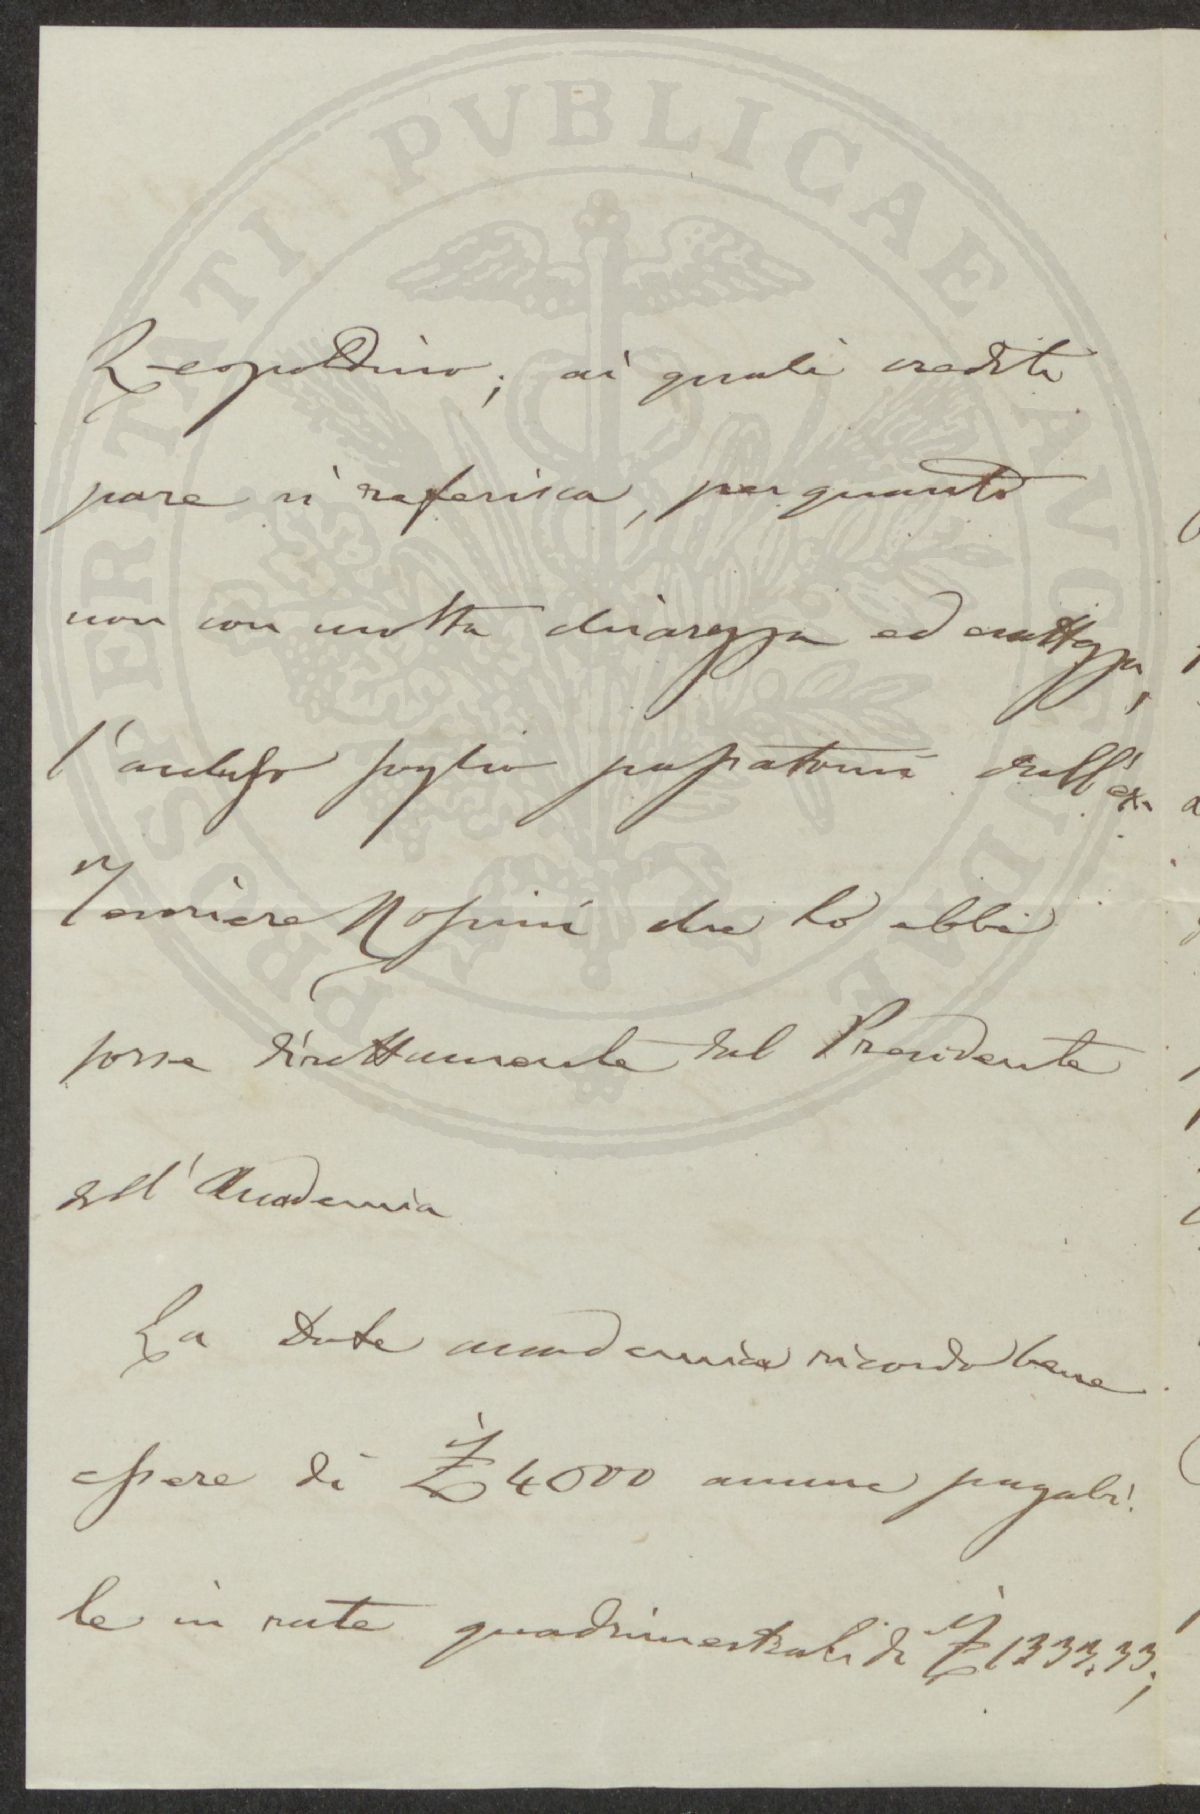 PROSPERITATI PVBLICAE AVGENDAE
Leopoldino; ai quali crediti
pare si referisca, per quanto
non con molta chiarezza ed esattezza,
l'accluso foglio passatomi dall'ex-
Tesoriere Rosini che lo ebbe
forse direttamente dal Presidente
dell'Accademia
La Dote accademica ricordo bene
essere di £ 4000 annue pagabi-
le in rate quadrimestrali di £ 1333,33;